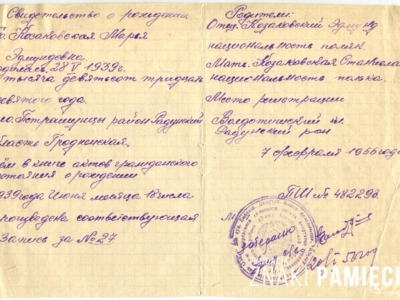 Свидетельство о рождении
Козаковская Марья
Эдмундовна
родилась 28 V 1939г.
тысяча девятьсот тридцать
девятого года.
район Радунский
область Гродненская.
чём в книге актов гражданского
состояния о рождении
1939 года Июня месяца 18 числа
произведена соответствующая
запись за № 27
Родители:
Отец Козаковский Эдмунд
национальность поляк
Мать Козаковская Станислава
национальность полька.
Место регистрации
Радунский р-он
7 февраля 1956 года
ПШ № 482293
М
ZNAKI PAMIĘCI